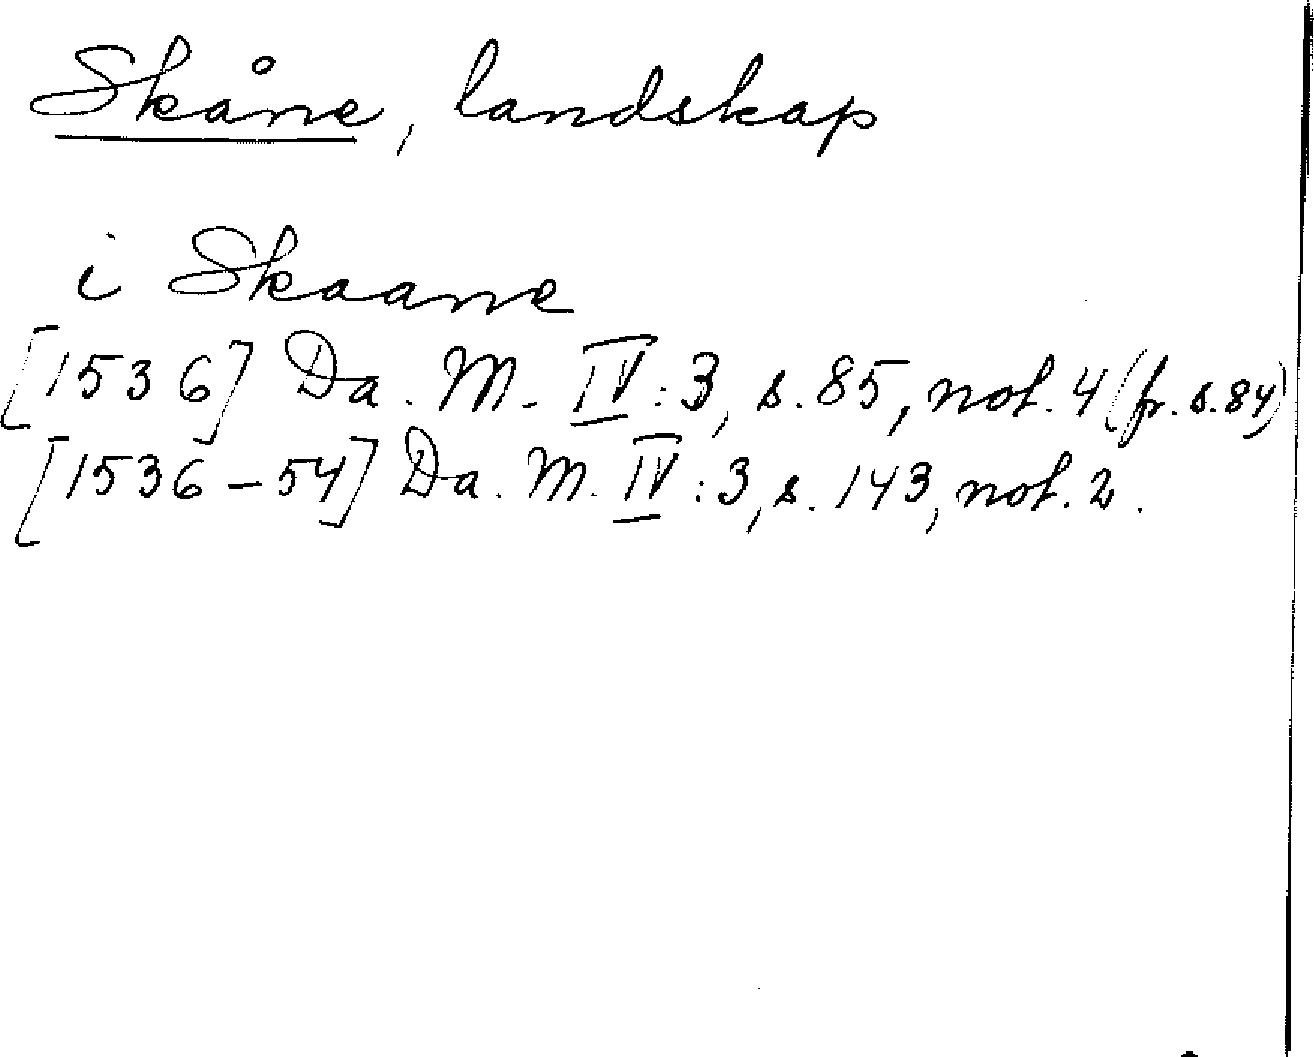 Skåne, landskap
i Skaane
[1536] Da. M. IV:3, s. 85, not. 4 (fr. s. 84)
[1536-54] Da. M. IV:3, s. 143, not. 2.